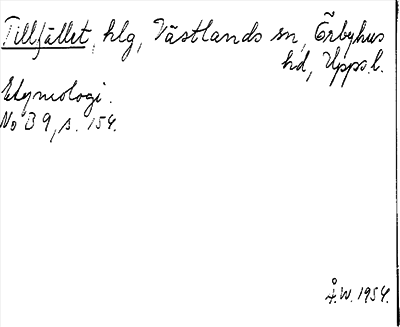 Tillfället, hlg, Västlands sn, Örbyhus
hd, Upps.l.
Etymologi.
No B 9, s. 154.
Å.W. 1954.